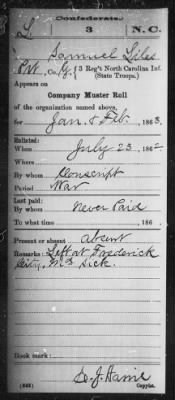 Confederate.
L. 3 N.C.
Samuel Liles
Pvt, Co. G, 3 Reg't North Carolina Inf.
(State Troops.)
Appears on
Company Muster Roll
of the organization named above,
for Jan & Feb, 1863.
Enlisted:
When July 23, 1862
Where
By whom Conscript
Period War
Last paid:
By whom Never Paid
To what time , 186 .
Present or absent Absent
Remarks: Left at Frederick
City, Md Sick.
Book mark:
Copyist.